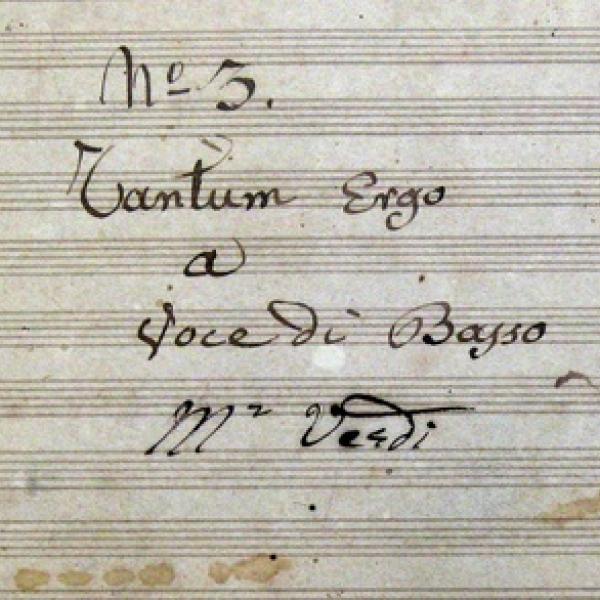 Nº 3.
Tantum Ergo
a
Voce di Basso
Mr Verdi